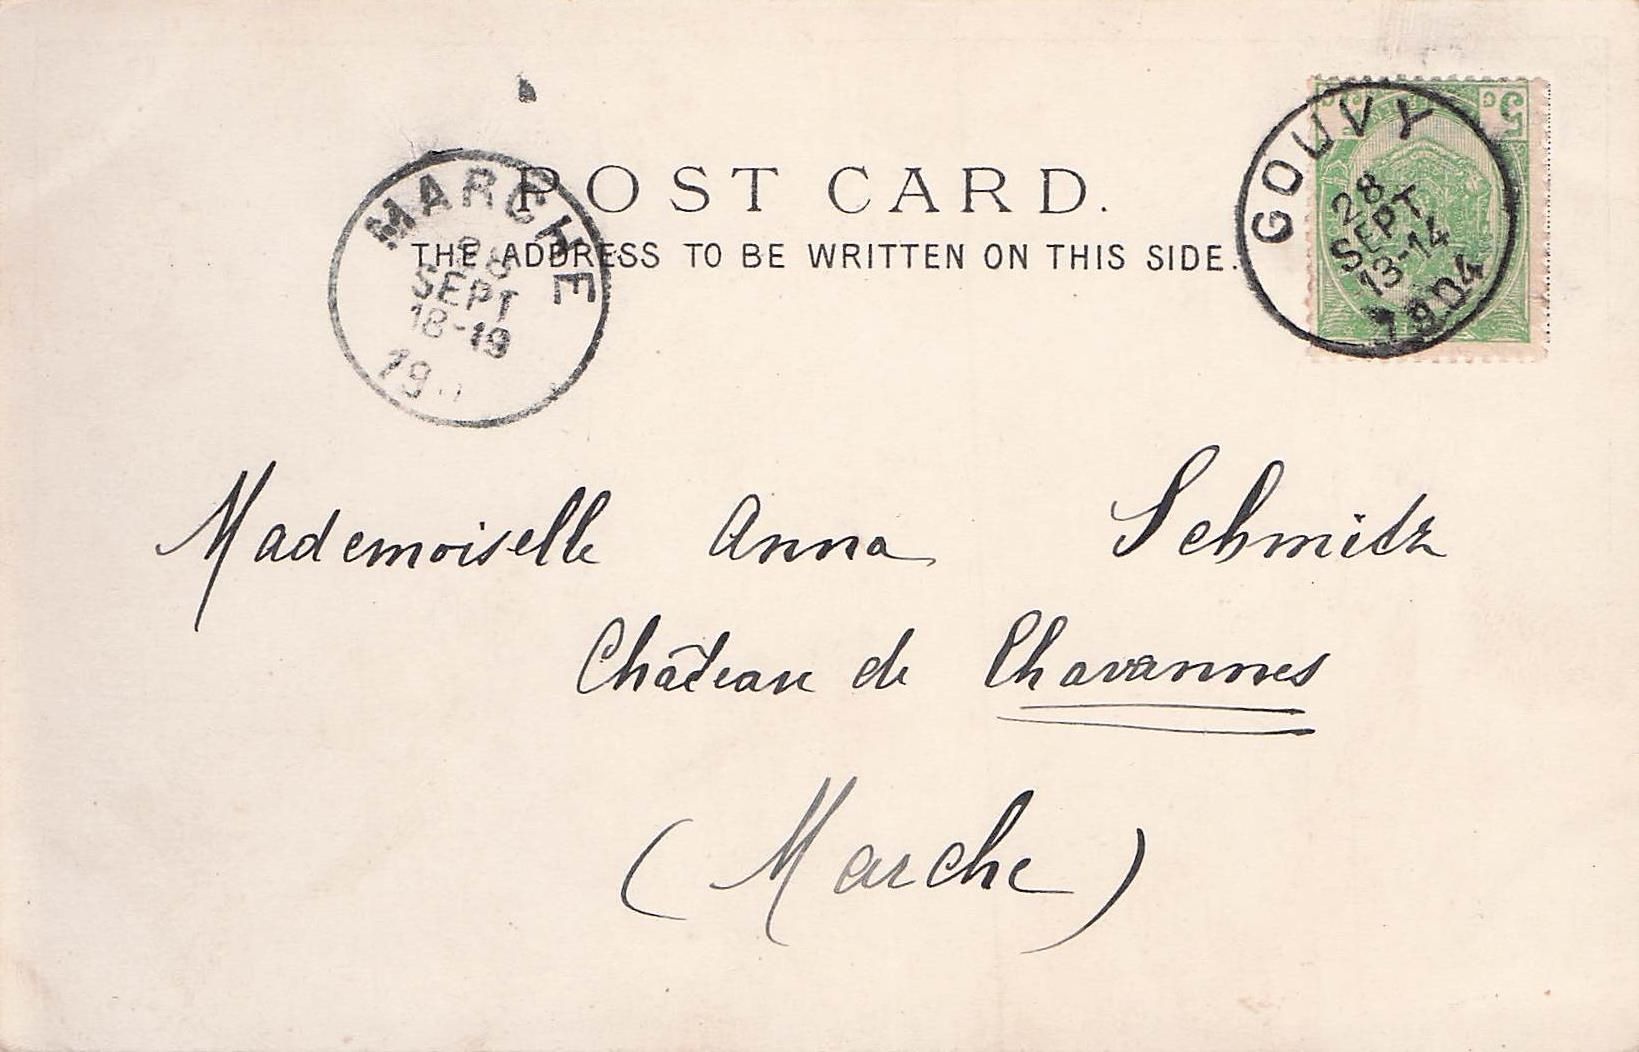 POST CARD.
THE ADDRESS TO BE WRITTEN ON THIS SIDE.
MARCHE
28
SEPT
18-19
19
GOUVY
28
SEPT
13-14
1904
5 c
Mademoiselle Anna Schmitz
Château de Chavannes
(Marche)